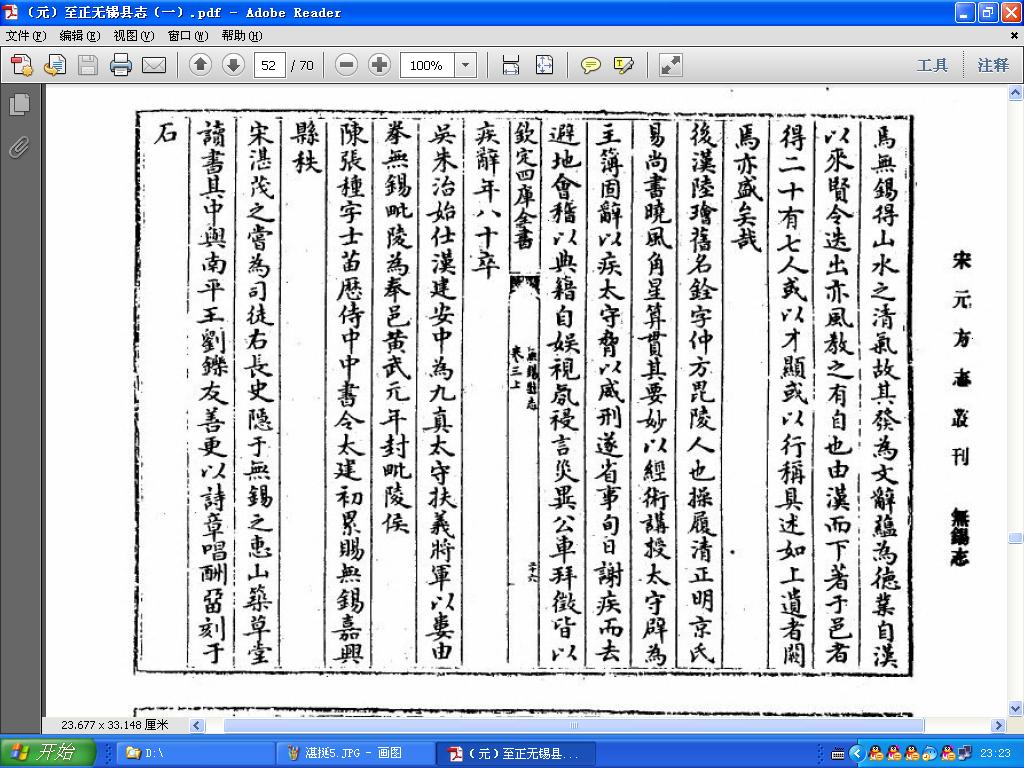 （元）至正无锡县志（一）.pdf - Adobe Reader
文件(F) 编辑(E) 视图(V) 窗口(W) 帮助(H)
52 / 70 100% 工具 注释
宋元方志叢刊 無錫志
焉無錫得山水之清氣故其發為文辭蘊為德業自漢
以來賢令迭出亦風教之有自也由漢而下著于邑者
得二十有七人或以才顯或以行稱具述如上遺者闕
焉亦盛矣哉
後漢陸璯舊名銓字仲方毘陵人也操履清正明京氏
易尚書曉風角星算貫其要妙以經術講授太守辟為
主簿固辭以疾太守脅以威刑遂省事旬日謝疾而去
避地會稽以典籍自娛視氛祲言災異公車拜徵皆以
欽定四庫全書 無錫縣志 卷三上 二十六
疾辭年八十卒
吳朱治始仕漢建安中為九真太守扶義將軍以婁由
拳無錫毗陵為奉邑黃武元年封毗陵侯
陳張種字士苗歷侍中中書令太建初累賜無錫嘉興
縣秩
宋湛茂之嘗為司徒右長史隱于無錫之惠山築草堂
讀書其中與南平王劉鑠友善更以詩章唱酬畱刻于
石
23.677 x 33.148 厘米
开始 D:\ 湛挺5.JPG - 画图 （元）至正无锡县... 23:23